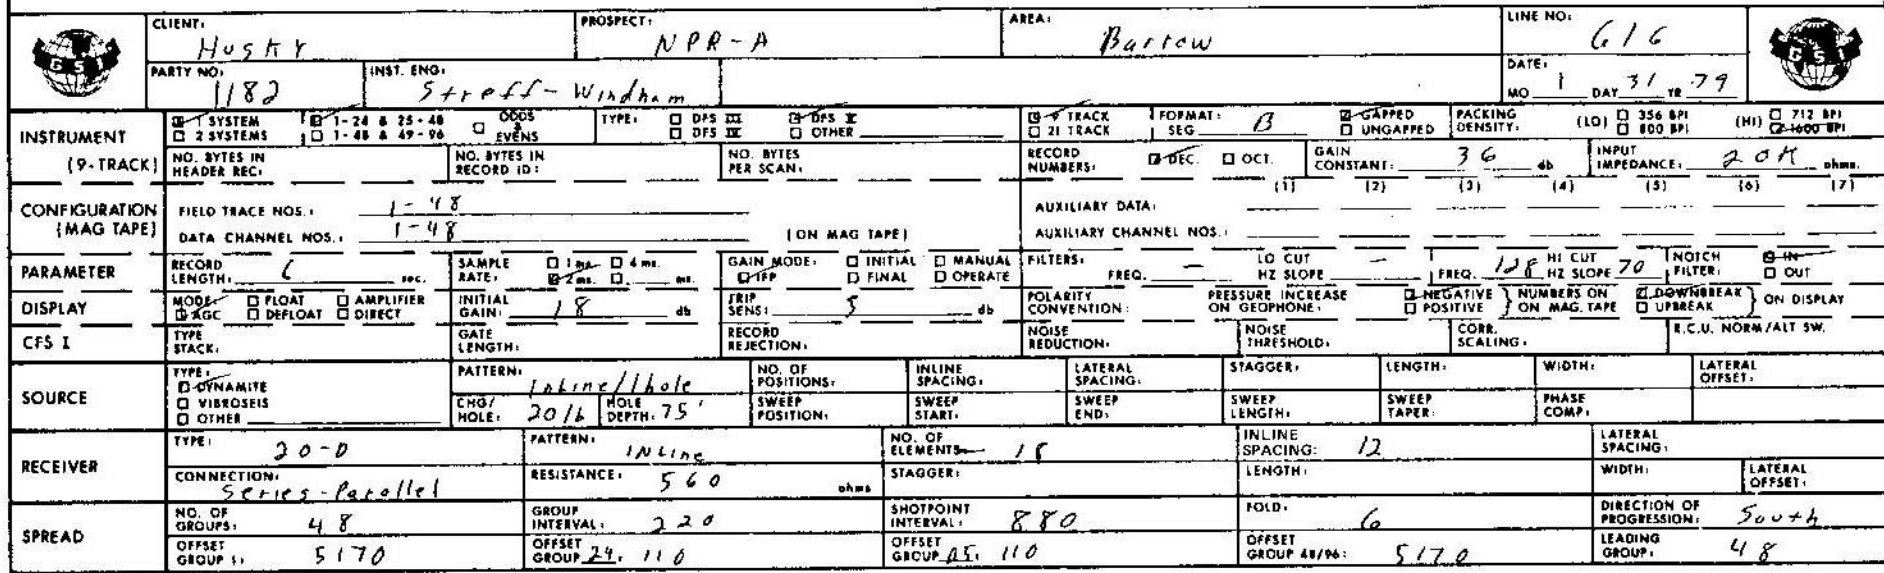 CLIENT: Husky PROSPECT: NPR-A AREA: Barrow LINE NO: 616
GSI GSI
PARTY NO: 1182 INST. ENG: Streff-Windham DATE: MO 1 DAY 31 YR 79
INSTRUMENT (9-TRACK) ☑ 1 SYSTEM ☐ 2 SYSTEMS ☑ 1-24 & 25-48 ☐ 1-48 & 49-96 ☐ ODDS & EVENS TYPE: ☐ DFS III ☐ DFS IV ☑ DFS V ☐ OTHER ☑ 9 TRACK ☐ 21 TRACK FORMAT: SEG B ☑ GAPPED ☐ UNGAPPED PACKING DENSITY: (LO) ☐ 356 BPI ☐ 800 BPI (HI) ☐ 712 BPI ☑ 1600 BPI
NO. BYTES IN HEADER REC: NO. BYTES IN RECORD ID: NO. BYTES PER SCAN: RECORD NUMBERS: ☑ DEC. ☐ OCT. GAIN CONSTANT: 36 db INPUT IMPEDANCE: 20K ohms.
(1) (2) (3) (4) (5) (6) (7)
CONFIGURATION (MAG TAPE) FIELD TRACE NOS.: 1-48 AUXILIARY DATA:
DATA CHANNEL NOS.: 1-48 (ON MAG TAPE) AUXILIARY CHANNEL NOS.:
PARAMETER RECORD LENGTH: 6 sec. SAMPLE RATE: ☐ 1 ms. ☐ 4 ms. ☑ 2 ms. ☐ ms. GAIN MODE: ☐ INITIAL ☐ MANUAL ☑ IFP ☐ FINAL ☐ OPERATE FILTERS: FREQ. — LO CUT HZ SLOPE — FREQ. 128 HI CUT HZ SLOPE 70 NOTCH FILTER: ☑ IN ☐ OUT
DISPLAY MODE: ☑ AGC ☐ FLOAT ☐ DEFLOAT ☐ AMPLIFIER ☐ DIRECT INITIAL GAIN: 18 db TRIP SENS: 5 db POLARITY CONVENTION: PRESSURE INCREASE ON GEOPHONE: ☑ NEGATIVE ☐ POSITIVE } NUMBERS ON MAG. TAPE ☑ DOWNBREAK ☐ UPBREAK } ON DISPLAY
CFS I TYPE STACK: GATE LENGTH: RECORD REJECTION: NOISE REDUCTION: NOISE THRESHOLD: CORR. SCALING: R.C.U. NORM/ALT SW.
SOURCE TYPE: ☑ DYNAMITE ☐ VIBROSEIS ☐ OTHER PATTERN: Inline/1hole NO. OF POSITIONS: INLINE SPACING: LATERAL SPACING: STAGGER: LENGTH: WIDTH: LATERAL OFFSET:
CHG/HOLE: 20lb HOLE DEPTH: 75' SWEEP POSITION: SWEEP START: SWEEP END: SWEEP LENGTH: SWEEP TAPER: PHASE COMP:
RECEIVER TYPE: 20-D PATTERN: INLine NO. OF ELEMENTS 18 INLINE SPACING: 12 LATERAL SPACING:
CONNECTION: Series-Parallel RESISTANCE: 560 ohms STAGGER: LENGTH: WIDTH: LATERAL OFFSET:
SPREAD NO. OF GROUPS: 48 GROUP INTERVAL: 220 SHOTPOINT INTERVAL: 880 FOLD: 6 DIRECTION OF PROGRESSION: South
OFFSET GROUP 1: 5170 OFFSET GROUP 24: 110 OFFSET GROUP 25: 110 OFFSET GROUP 48/96: 5170 LEADING GROUP: 48